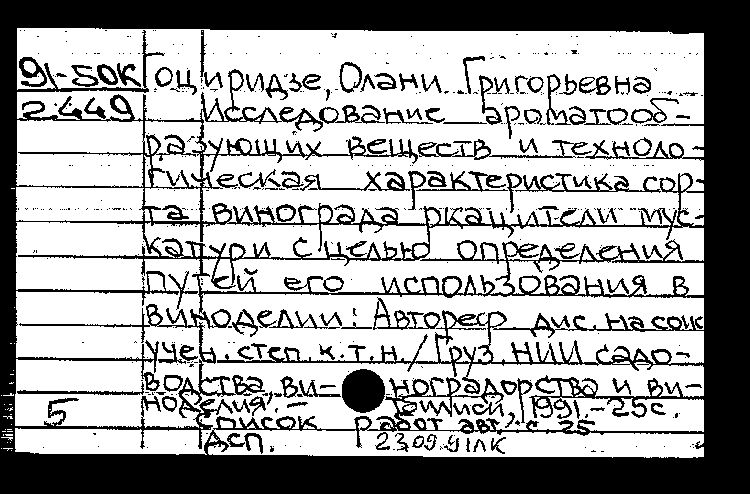 91-50К Гоциридзе, Олани Григорьевна
2.449 Исследование ароматооб-
разующих веществ и техноло-
гическая характеристика сор-
та винограда ркацители мус-
катури с целью определения
путей его использования в
виноделии: Автореф дис. на соиск
учен. степ. к.т.н. / Груз. НИИ садо-
водства, ви- ноградорства и ви-
ноделия. - Тбилиси, 1991. - 25с.
5 Список работ авт.: с. 25.
ДСП. 23.09.91ЛК